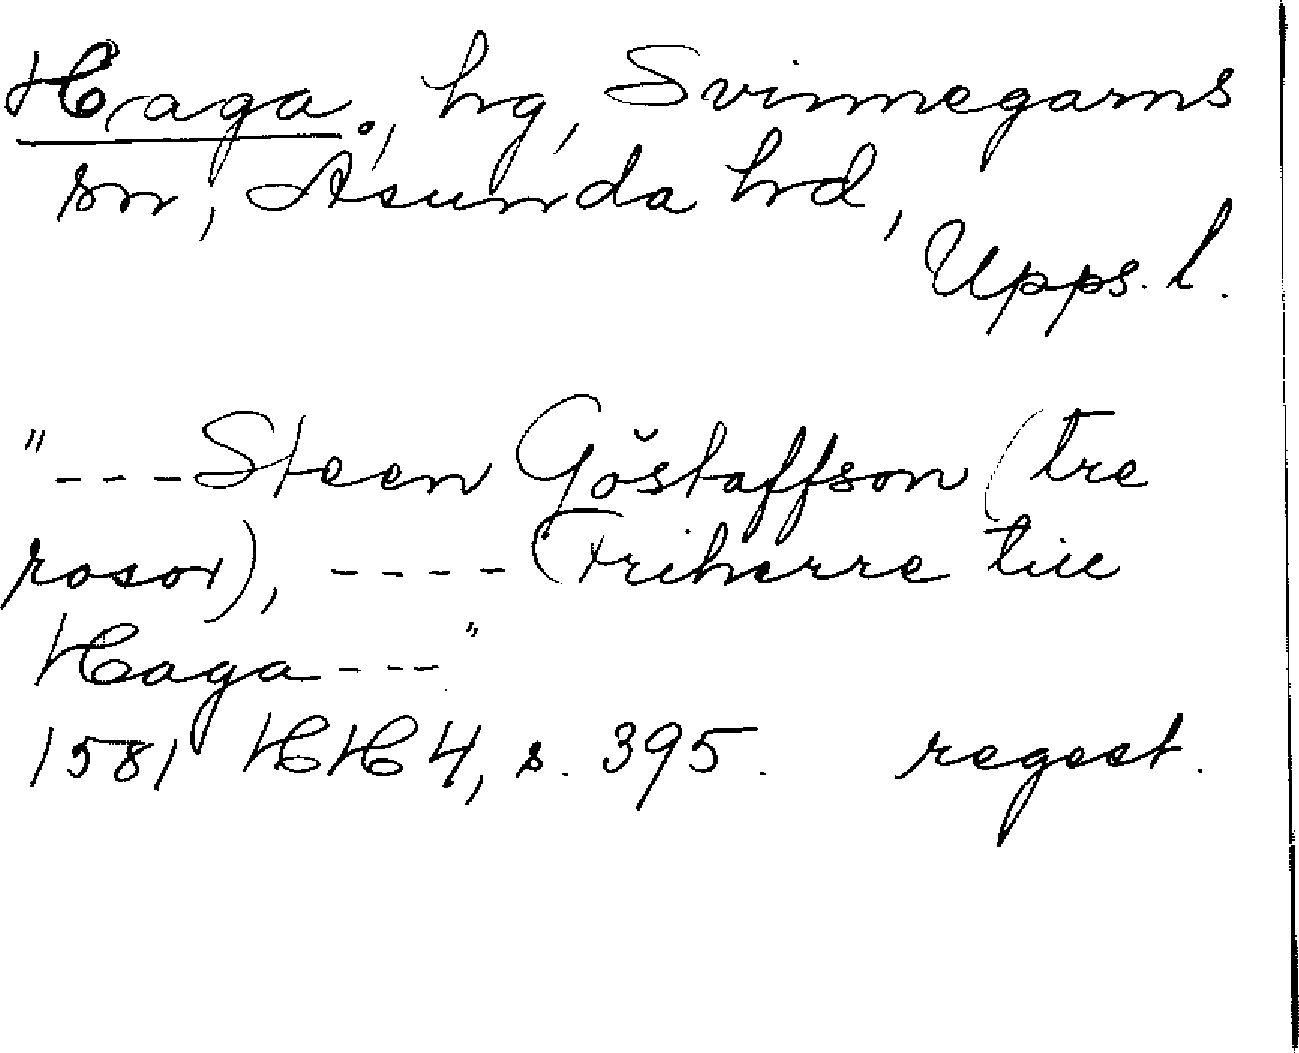 Haga., hg, Svinnegarns
sn, Åsunda hd,
Upps. l.
"---Steen Göstaffson (tre
rosor), ---- (Friherre till
Haga---"
1581 HH 4, s. 395. regest.